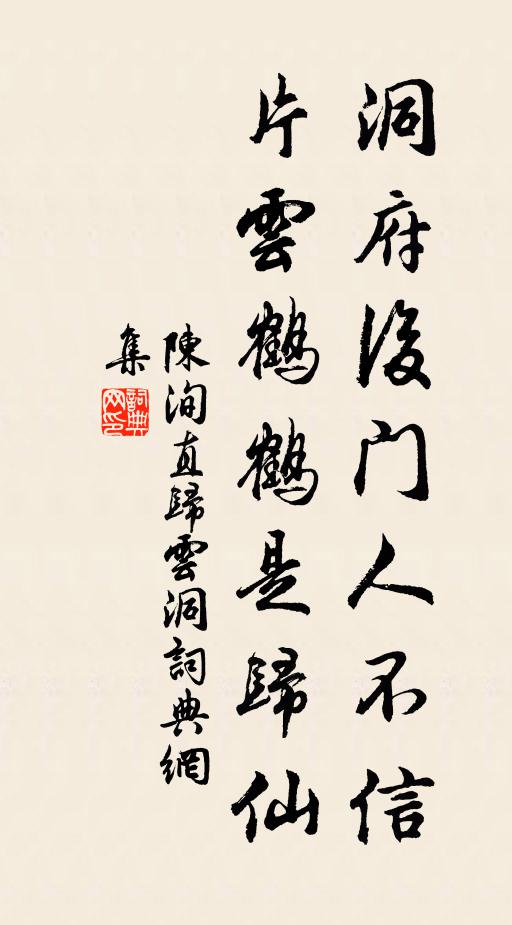 洞府後門人不信
片雲鶴鶴是歸仙
陳洵直歸雲洞詞典網
集
詞典
网印